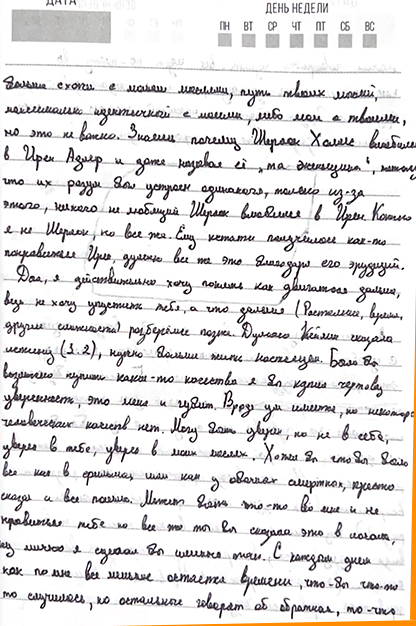 ДАТА
ДЕНЬ НЕДЕЛИ
ПН ВТ СР ЧТ ПТ СБ ВС
больше схожи с моими мыслями, путь твоих мыслей,
максимально идентичной с моими, либо мои с твоими,
но это не важно. Знаешь почему Шерлок Холмс влюбился
в Ирен Адлер и даже называл её „та женщина",
что их разум был устроен одинаково, только из-за
этого, никого не любящий Шерлок влюбился в Ирен. Конечно
я не Шерлок, но все же. Ему кстати получилось как-то
понравиться Ирен, думаю все же это благодаря его эрудиции.
Даа, я действительно хочу понять как двигаться дальше,
ведь не хочу упустить тебя, а что дальше (Расстояние, время,
другие сложности) разберёмся позже. Думаю сказала
(3.2), нужно больше жить настоящим. Было бы
возможно купить какие-то качества я бы купил чертову
уверенность, это меня и губит. Вроде ум имеется, но некоторых
человеческих качеств нет. Могу быть уверен, но не в себе,
уверен в тебе, уверен в моих мыслях. Хотел бы чтобы было
все как в фильмах, или как у обычных смертных, просто
сказал и все пошло. Может быть что-то во мне и не
нравиться тебе но все же ты бы сказала это в начале,
лично я сделал бы именно так. С каждым днем
как по мне все меньше остается времени, что-бы что-то
то случилось, но остальные говорят об обратном, то что